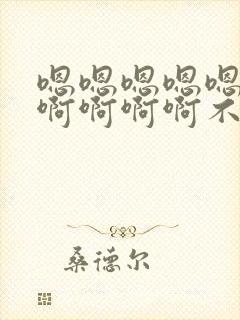 嗯嗯嗯嗯嗯
啊啊啊啊不
桑德尔